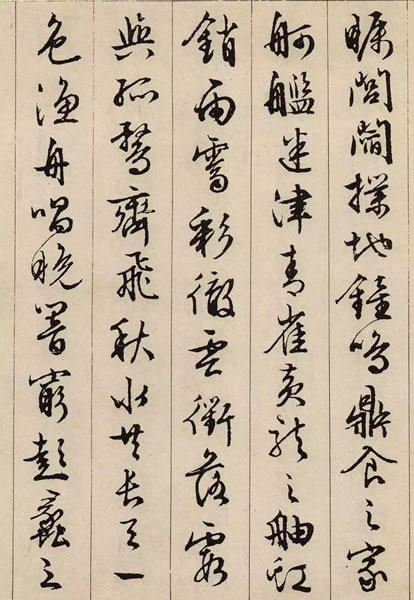 矚閭閻撲地鐘鳴鼎食之家
舸艦迷津青雀黃龍之舳虹
銷雨霽彩徹雲衢落霞
與孤鶩齊飛秋水共長天一
色漁舟唱晚響窮彭蠡之